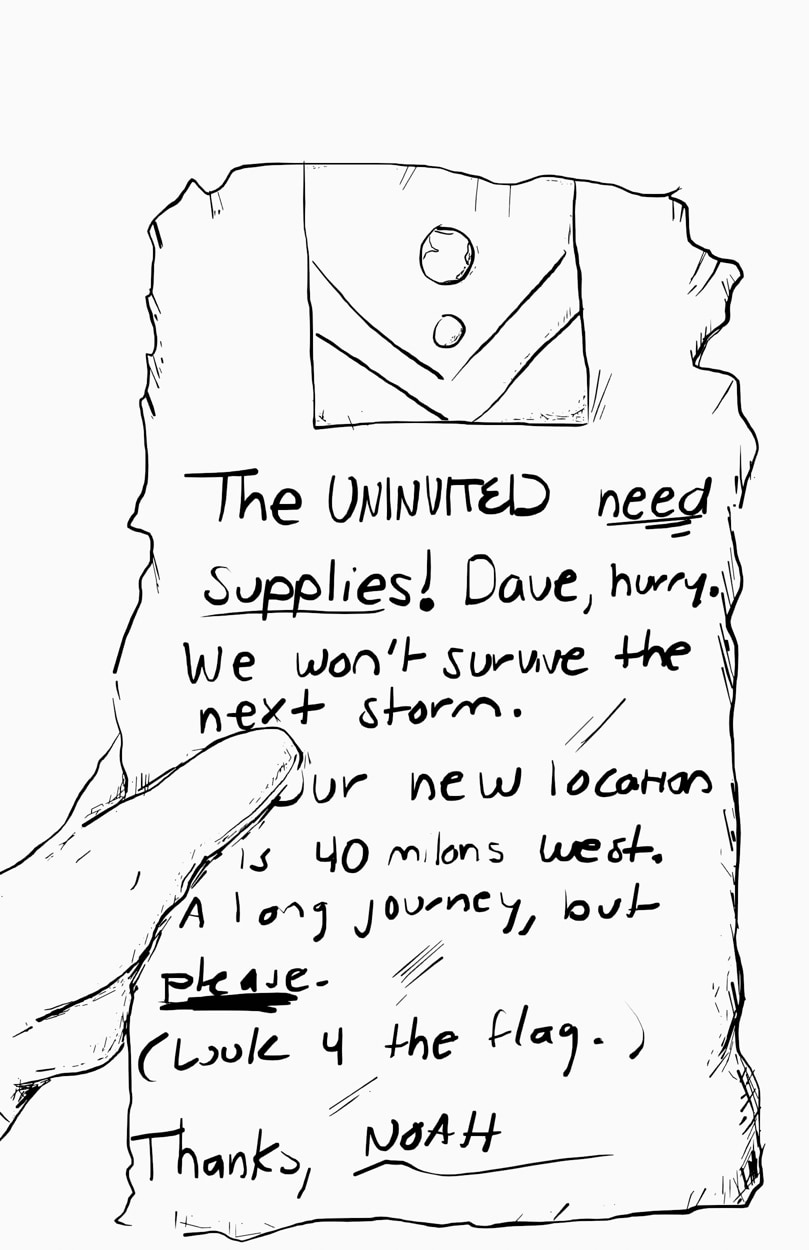 The UNINVITED need
supplies! Dave, hurry.
We won't survive the
next storm.
Our new location
is 40 milons west.
A long journey, but
please.
(Look 4 the flag.)
Thanks, NOAH